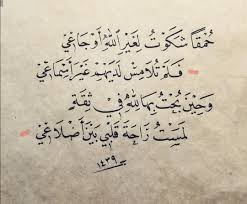 حُمْقًا شَكَوْتُ لِغَيْرِ اللهِ أَوْجَاعِي
فَلَمْ تُلَامِسْ لَدَيْهِمْ غَيْرَ أَسْمَاعِي
وَحِينَ بُحْتُ بِهَا لِلهِ فِي ثِقَةٍ
لَمَسْتُ رَاحَةَ قَلْبِي بَيْنَ أَضْلَاعِي
١٤٣٩